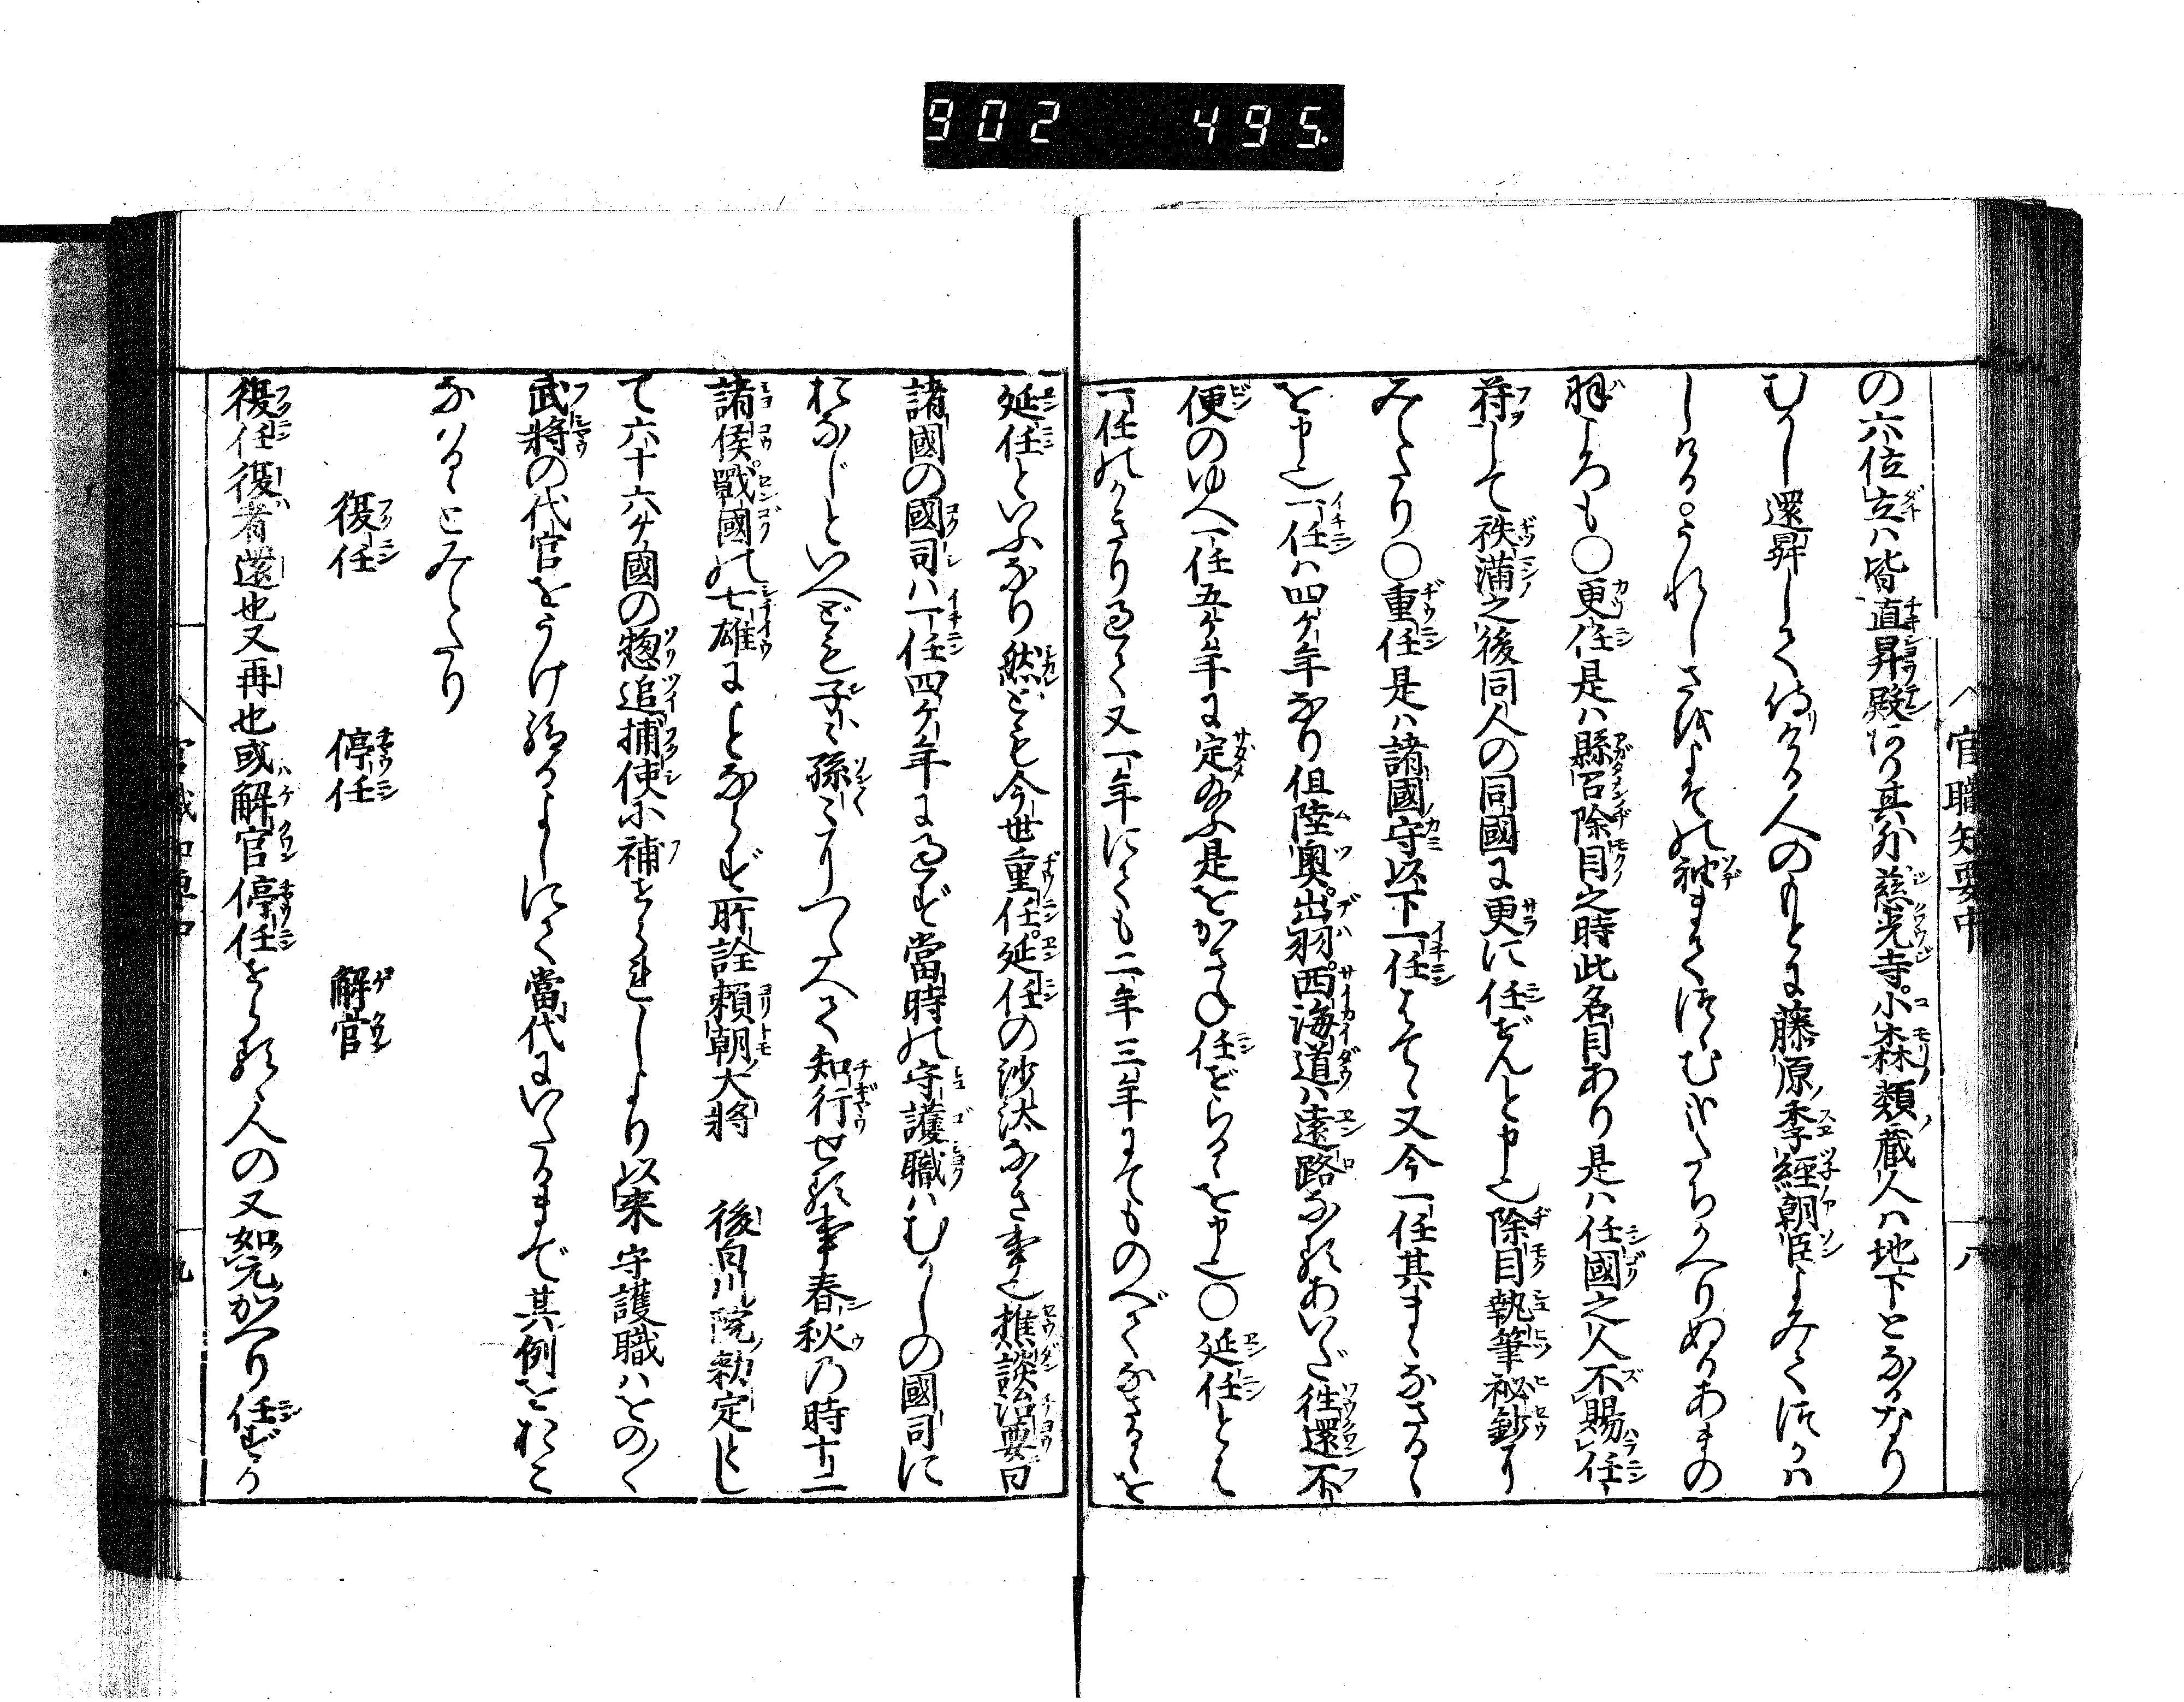 902 495
官職知要中 八
の六位立ハ皆直昇殿あり其外慈光寺小森類蔵人ハ地下となるなり
むかし還昇して侍りける人のもとに藤原季経朝臣よみてつかハ
しける。うれしさをよその袖まてつゝむ哉たちかへりぬるあまの
羽ころも〇更任是ハ縣召除目之時此名目あり是ハ任國之人不賜任
符して秩満之後同人の同國に更に任ぜんと申也除目執筆秘鈔に
みえたり〇重任是ハ諸國守以下一任はてゝ又今一任其まゝなさるゝ
を申也一任ハ四ケ年なり但陸奥出羽西海道ハ遠路なるあいだ往還不
便のゆへ一任五ケ年に定給ふ是をかさね任ぜらるゝを申也〇延任とは
一任のかきり過て又一年にても二年三年にてものべてなさるゝを
延任といふなり然ども今世重任延任の沙汰なき事也樵談治要曰
諸國の國司ハ一任四ケ年に過ず當時の守護職ハむかしの國司に
おなじといへども子々孫々につたへて知行せる事春秋の時十二
諸侯戰國の七雄にことならず所詮頼朝大将 後白川院勅定とし
て六十六ケ國の惣追捕使に補せられしより以来守護職ハをの〳〵
武将の代官をうけ給るよしにて當代にいたるまで其例をおこ
なはるとみえたり
復任 停任 解官
復任復者還也又再也或解官停任せらるゝ人の又如元かへり任ずる
九